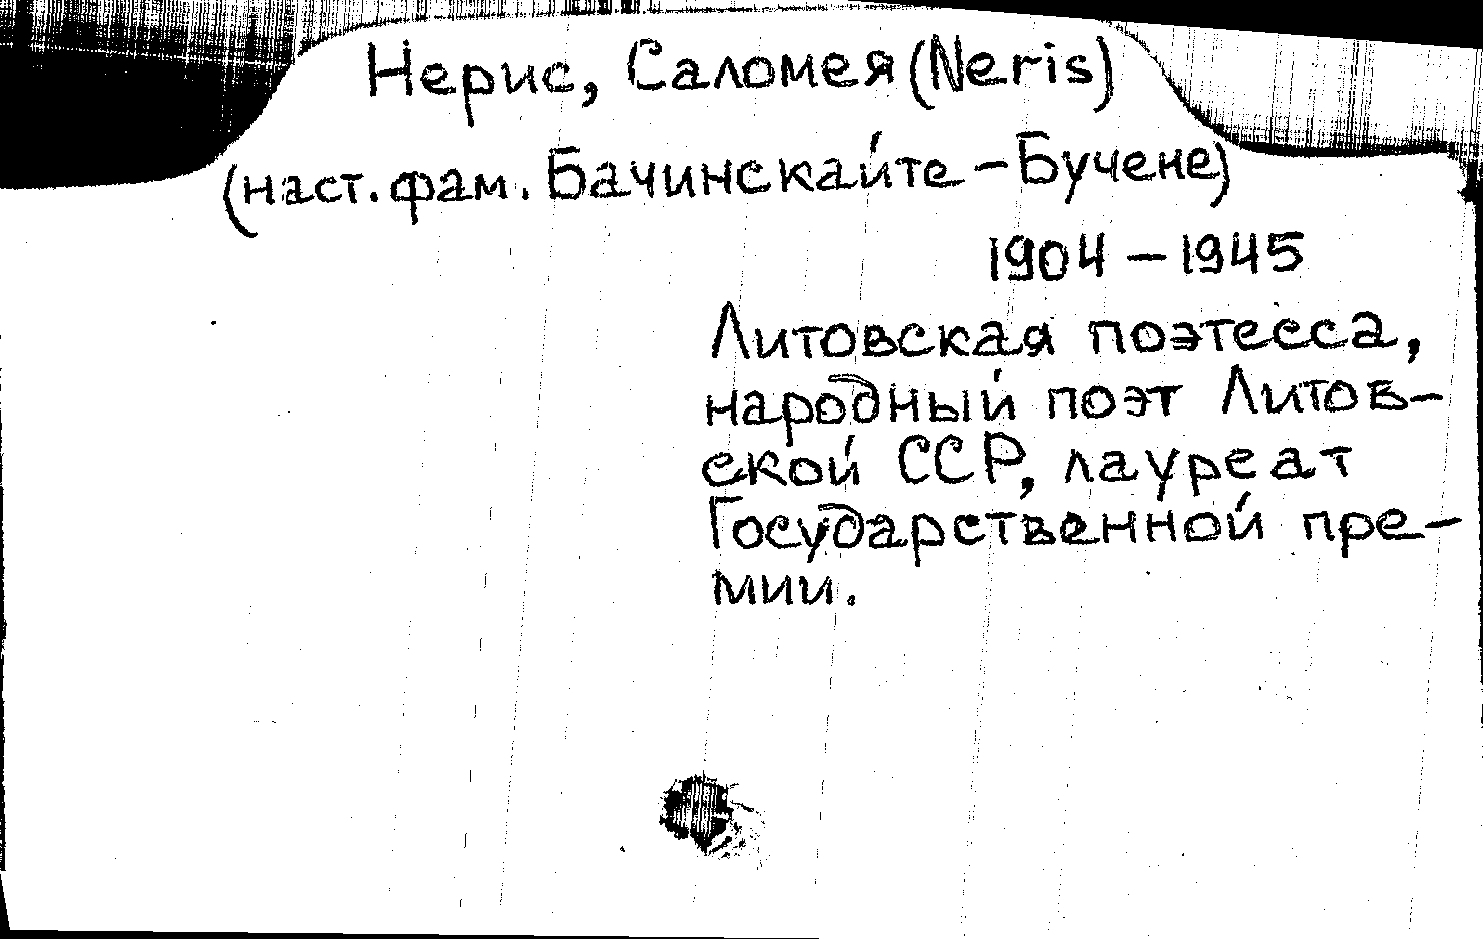 Нерис, Саломея (Neris)
(наст. фам. Бачинскайте – Бучене)
1904 – 1945
Литовская поэтесса,
народный поэт Литов-
ской ССР, лауреат
Государственной пре-
мии.